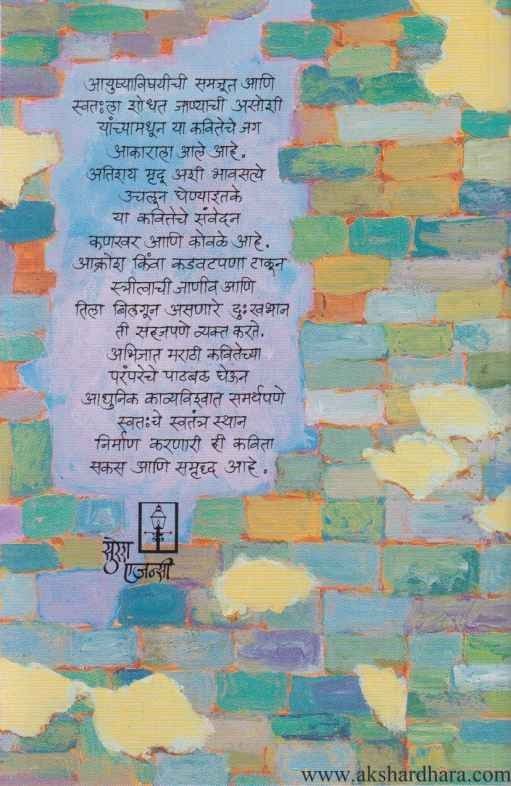 आयुष्याविषयीची समजूत आणि
स्वतःला शोधत जाण्याची असोशी
यांच्यामधून या कवितेचे जग
आकाराला आले आहे.
अतिशय मृदू अशी भावसत्ये
उचलून घेण्याइतके
या कवितेचे संवेदन
कणखर आणि कोवळे आहे.
आक्रोश किंवा कडवटपणा टाकून
स्त्रीत्वाची जाणीव आणि
तिला बिलगून असणारे दुःखभान
ती सहजपणे व्यक्त करते.
अभिजात मराठी कवितेच्या
परंपरेचे पाठबळ घेऊन
आधुनिक काव्यविश्वात समर्थपणे
स्वतःचे स्वतंत्र स्थान
निर्माण करणारी ही कविता
सकस आणि समृध्द आहे.
सुरेश
एजन्सी
www.akshardhara.com